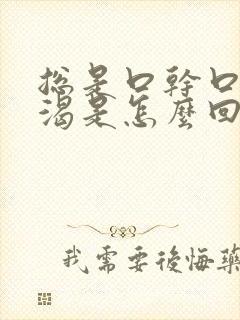 总是口幹口
渴是怎麼回
我需要後悔藥